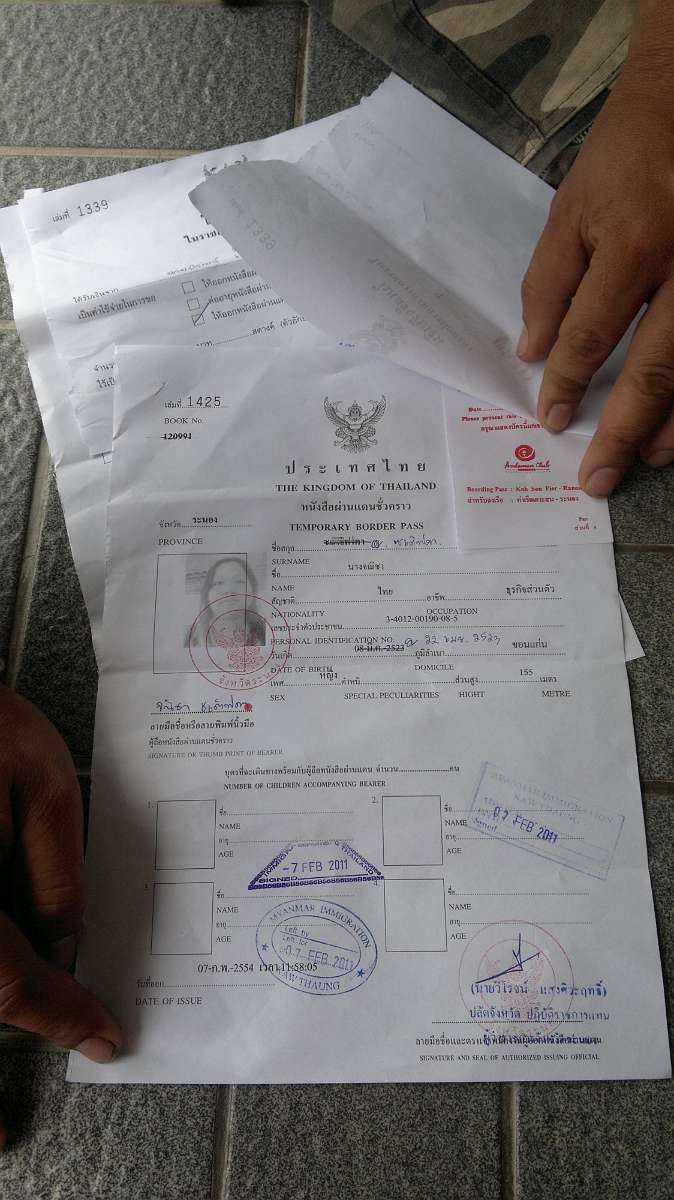 เล่มที่ 1339
ได้รับเงินจาก
เป็นค่าใช้จ่ายในการขอ
ให้ออกหนังสือผ่าน
ต่ออายุหนังสือผ่าน
ให้ออกหนังสือผ่านแดน
บาท
สตางค์ (ตัวอักษร
เล่มที่ 1425
BOOK No.
120991
ประเทศไทย
THE KINGDOM OF THAILAND
หนังสือผ่านแดนชั่วคราว
TEMPORARY BORDER PASS
Date
Please present this
Andaman Club
Boarding Pass : Koh Son Pier - Ranong
จังหวัด ระนอง
PROVINCE
ชื่อสกุล
SURNAME
ชื่อ
NAME
สัญชาติ ไทย อาชีพ ธุรกิจส่วนตัว
NATIONALITY OCCUPATION
เลขประจำตัวประชาชน 3-4012-00190-08-5
PERSONAL IDENTIFICATION NO.
วันเกิด 08-ม.ค.-2523 ภูมิลำเนา ขอนแก่น
DATE OF BIRTH DOMICILE
เพศ หญิง ตำหนิ ส่วนสูง 155 เมตร
SEX SPECIAL PECULIARITIES HIGHT METRE
ลายมือชื่อหรือลายพิมพ์นิ้วมือ
ผู้ถือหนังสือผ่านแดนชั่วคราว
SIGNATURE OR THUMB PRINT OF BEARER
บุตรที่จะเดินทางพร้อมกับผู้ถือหนังสือผ่านแดน จำนวน คน
NUMBER OF CHILDREN ACCOMPANYING BEARER
1. ชื่อ
NAME
อายุ
AGE
2. ชื่อ
NAME
อายุ
AGE
MYANMAR IMMIGRATION
KAW THAUNG
Signed
07 FEB 2011
3. ชื่อ
NAME
อายุ
AGE
4. ชื่อ
NAME
อายุ
AGE
-7 FEB 2011
SIGNED
MYANMAR IMMIGRATION
Left by
Left for
07 FEB 2011
KAW THAUNG
07-ก.พ.-2554 เวลา 11:58:05
วันที่ออก
DATE OF ISSUE
(นายวิโรจน์ แสงศิวะฤทธิ์)
ปลัดจังหวัด ปฏิบัติราชการแทน
SIGNATURE AND SEAL OF AUTHORIZED ISSUING OFFICIAL